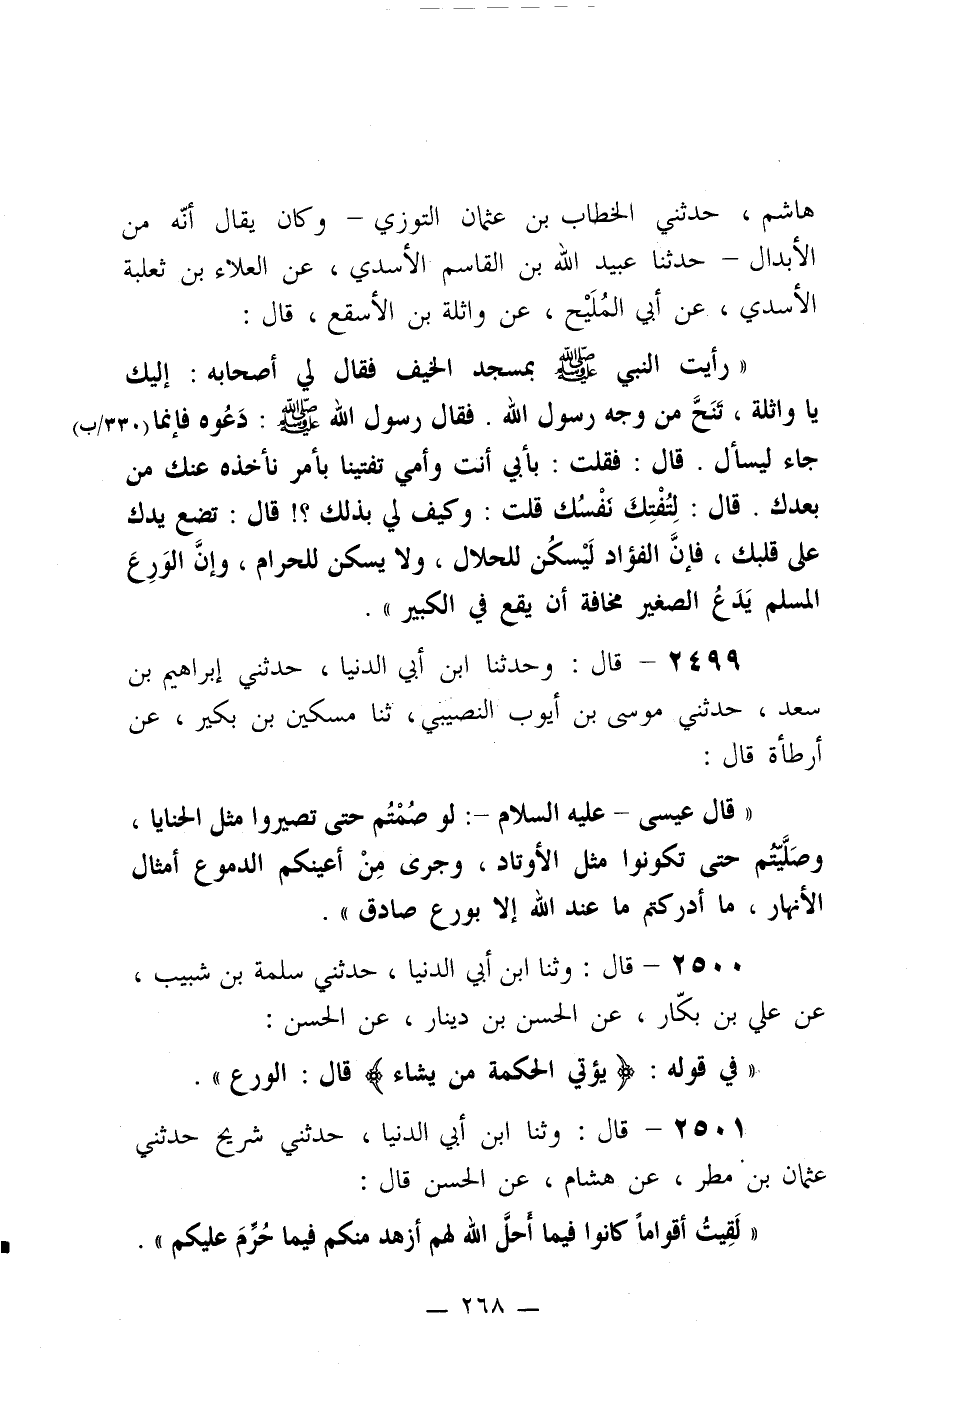 هاشم ، حدثني الخطاب بن عثمان التوزي – وكان يقال أنّه من
الأبدال – حدثنا عبيد الله بن القاسم الأسدي ، عن العلاء بن ثعلبة
الأسدي ، عن أبي المُلَيْح ، عن واثلة بن الأسقع ، قال :
« رأيت النبي ﷺ بمسجد الخيف فقال لي أصحابه : إليك
يا واثلة ، تَنَحَّ من وجه رسول الله . فقال رسول الله ﷺ : دَعُوه فإنما (٣٣٠/ب)
جاء ليسأل . قال : فقلت : بأبي أنت وأمي تفتينا بأمر نأخذه عنك من
بعدك . قال : لِتُفْتِكَ نَفْسُك قلت : وكيف لي بذلك ؟! قال : تضع يدك
على قلبك ، فإنَّ الفؤاد لَيْسكُن للحلال ، ولا يسكن للحرام ، وإنَّ الوَرِعَ
المسلم يَدَعُ الصغير مخافة أن يقع في الكبير » .
٢٤٩٩ – قال : وحدثنا ابن أبي الدنيا ، حدثني إبراهيم بن
سعد ، حدثني موسى بن أيوب النصيبي ، ثنا مسكين بن بكير ، عن
أرطأة قال :
« قال عيسى – عليه السلام –: لو صُمْتُم حتى تصيروا مثل الحنايا ،
وصَلَّيْتُم حتى تكونوا مثل الأوتاد ، وجرى مِنْ أعينكم الدموع أمثال
الأنهار ، ما أدركتم ما عند الله إلا بورع صادق » .
٢٥٠٠ – قال : وثنا ابن أبي الدنيا ، حدثني سلمة بن شبيب ،
عن علي بن بكّار ، عن الحسن بن دينار ، عن الحسن :
« في قوله : ﴿ يؤتي الحكمة من يشاء ﴾ قال : الورع » .
٢٥٠١ – قال : وثنا ابن أبي الدنيا ، حدثني شريح حدثني
عثمان بن مطر ، عن هشام ، عن الحسن قال :
« لَقِيتُ أقواماً كانوا فيما أَحلَّ الله لهم أزهد منكم فيما حُرِّمَ عليكم » .
— ٢٦٨ —